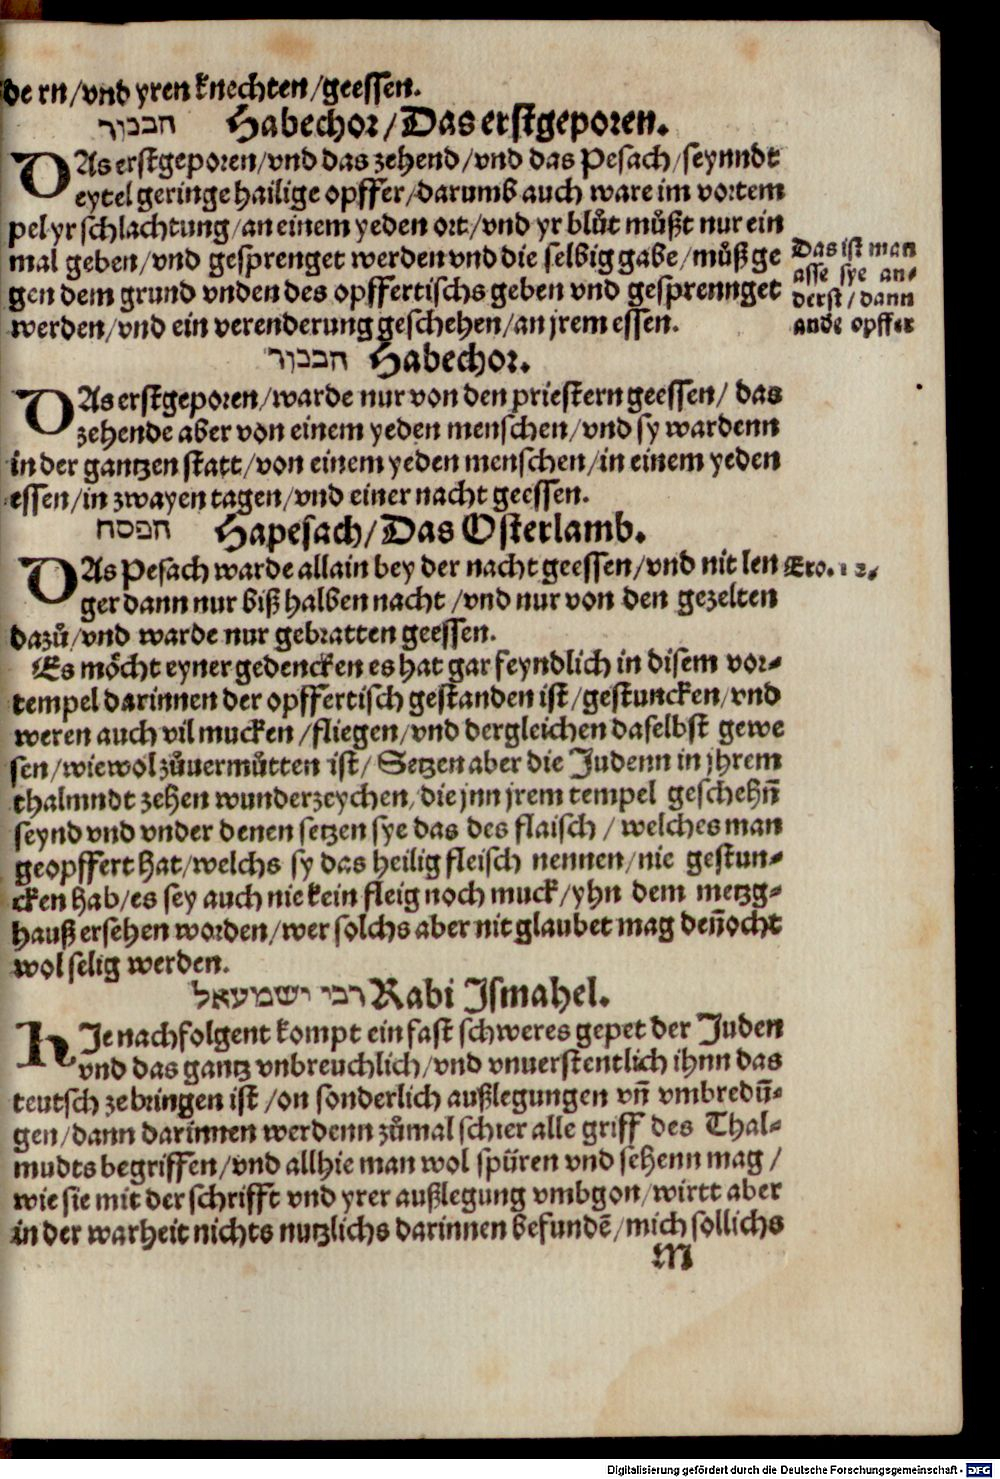 de rn/vnd yren knechten/geessen.
הבכור Habechor/Das erstgeporen.
DAs erstgeporen/vnd das zehend/vnd das Pesach/seynndt
eytel geringe hailige opffer/darumb auch ware im vortem
pel yr schlachtung/an einem yeden ort/vnd yr blůt můßt nur ein
mal geben/vnd gesprenget werden vnd die selbig gabe/můß ge
gen dem grund vnden des opffertischs geben vnd gesprennget
werden/vnd ein verenderung geschehen/an jrem essen.
Das ist man
asse sye an-
derst/dann
ande opffer
הבכור Habechor.
DAs erstgeporen/warde nur von den priestern geessen/ das
zehende aber von einem yeden menschen/vnd sy wardenn
in der gantzen statt/von einem yeden menschen/in einem yeden
essen/in zwayen tagen/vnd einer nacht geessen.
הפסח Hapesach/Das Osterlamb.
DAs Pesach warde allain bey der nacht geessen/vnd nit len
Exo. 12.
ger dann nur biß halben nacht /vnd nur von den gezelten
dazů/vnd warde nur gebratten geessen.
Es mȯcht eyner gedencken es hat gar feyndlich in disem vor-
tempel darinnen der opffertisch gestanden ist/gestuncken/vnd
weren auch vil mucken/fliegen/vnd dergleichen daselbst gewe
sen/wiewol zůuermůtten ist/ Setzen aber die Judenn in jhrem
thalmudt zehen wunderzeychen, die jnn jrem tempel geschehñ
seynd vnd vnder denen setzen sye das des flaisch / welches man
geopffert hat/welchs sy das heilig fleisch nennen/nie gestun-
cken hab/es sey auch nie kein fleig noch muck/yhn dem metzg-
hauß ersehen worden/wer solchs aber nit glaubet mag deñocht
wol selig werden.
רבי ישמעאל Rabi Jsmahel.
HJe nachfolgent kompt ein fast schweres gepet der Juden
vnd das gantz vnbreuchlich/vnd vnuerstentlich ihnn das
teutsch zebringen ist /on sonderlich außlegungen vñ vmbredũ-
gen/dann darinnen werdenn zůmal schier alle griff des Thal-
mudts begriffen/vnd allhie man wol spüren vnd sehenn mag /
wie sie mit der schrifft vnd yrer außlegung vmbgon/wirtt aber
in der warheit nichts nutzlichs darinnen befundē/mich sollichs
M
Digitalisierung gefördert durch die Deutsche Forschungsgemeinschaft - DFG